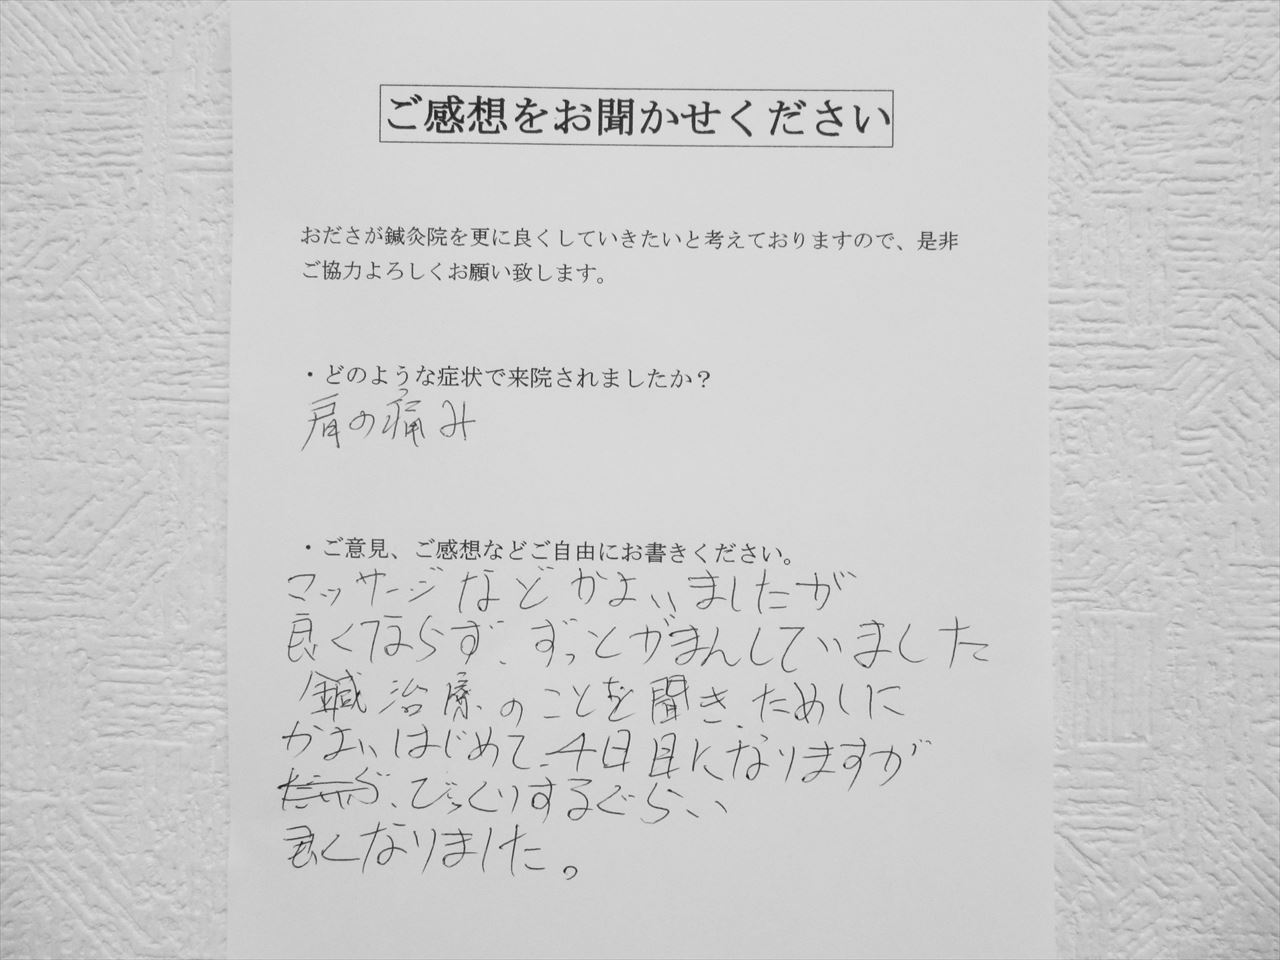 ご感想をお聞かせください
おださが鍼灸院を更に良くしていきたいと考えておりますので、是非
ご協力よろしくお願い致します。
・どのような症状で来院されましたか？
肩の痛み
・ご意見、ご感想などご自由にお書きください。
マッサージなどかよいましたが
良くならず、ずっとがまんしていました
鍼治療のことを聞き、ためしに
かよいはじめて、4日目になりますが
、びっくりするぐらい
良くなりました。